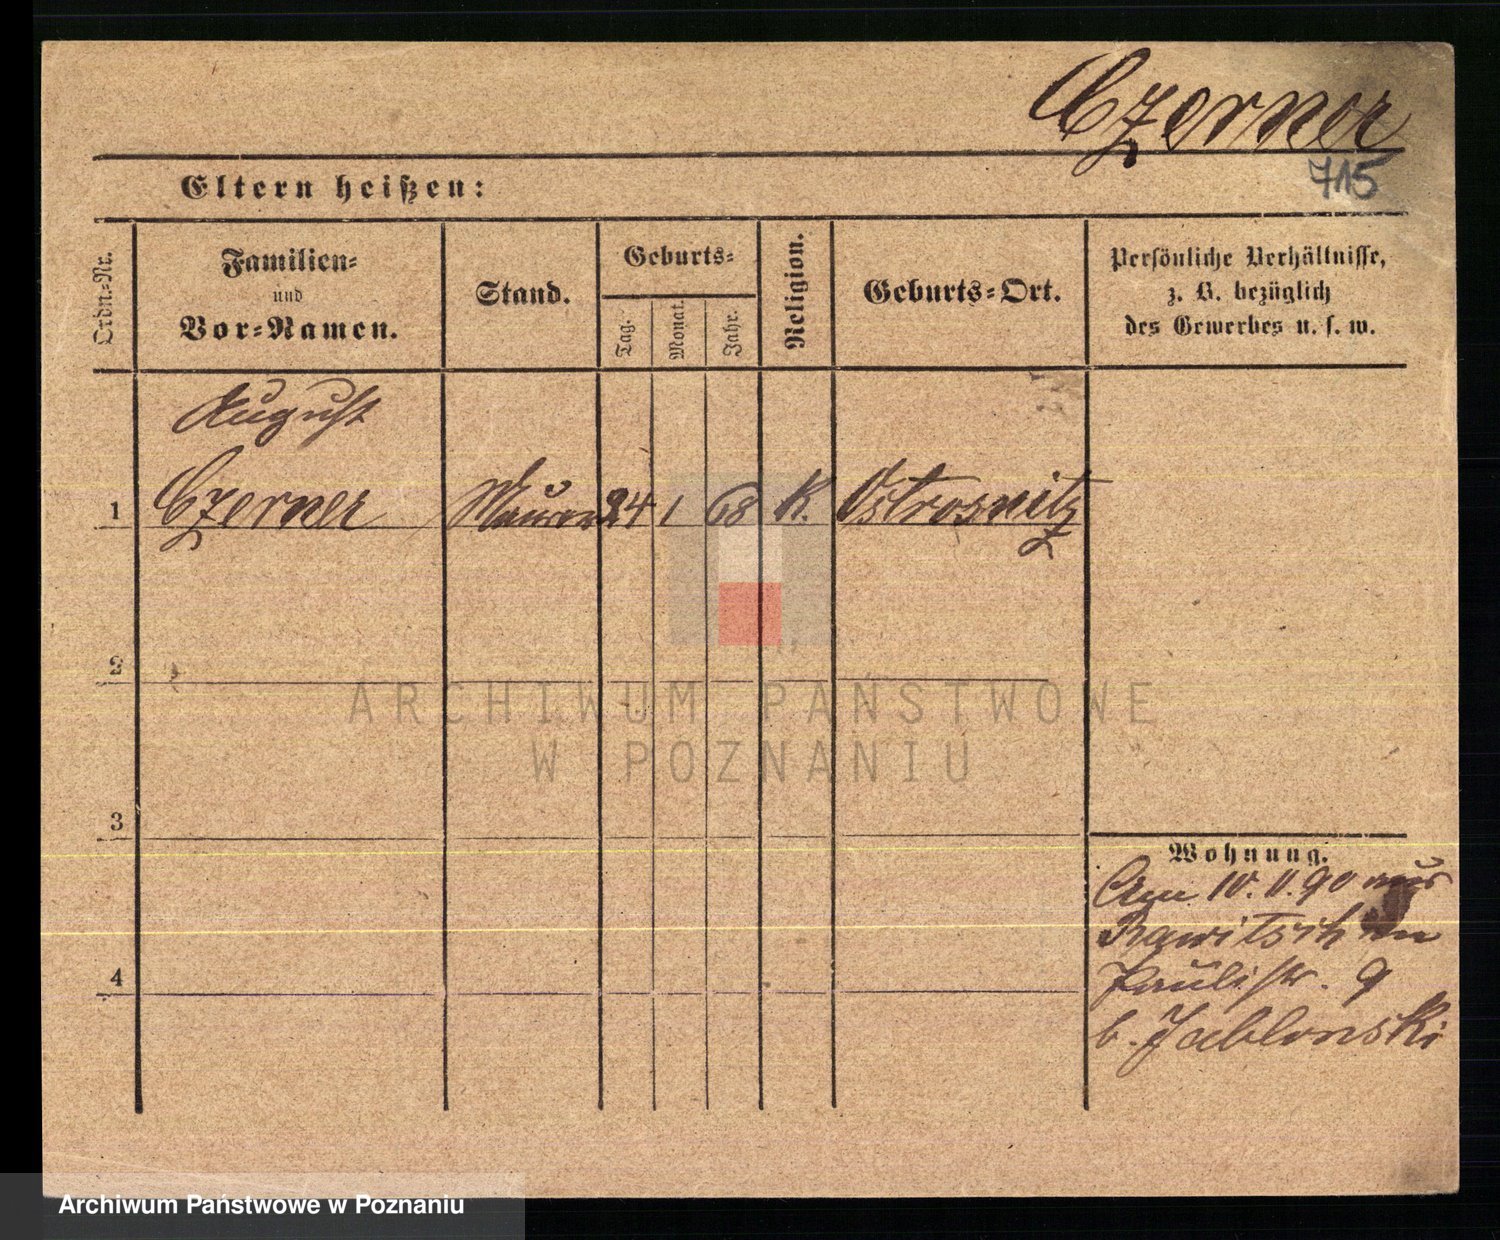 Czerner
715
Eltern heißen:
Ordn.-Nr.
Familien-
und
Vor-Namen.
Stand.
Geburts-
Tag.
Monat.
Jahr.
Religion.
Geburts-Ort.
Persönliche Verhältnisse,
z. B. bezüglich
des Gewerbes u. s. w.
August
1 Czerner Maurer 24 1 68 K. Ostrosnitz
2
3
4
Wohnung.
Am 10. 11. 90 aus
Rawitsch
Paulistr. 9
b. Jablonski
ARCHIWUM PAŃSTWOWE
W POZNANIU
Archiwum Państwowe w Poznaniu